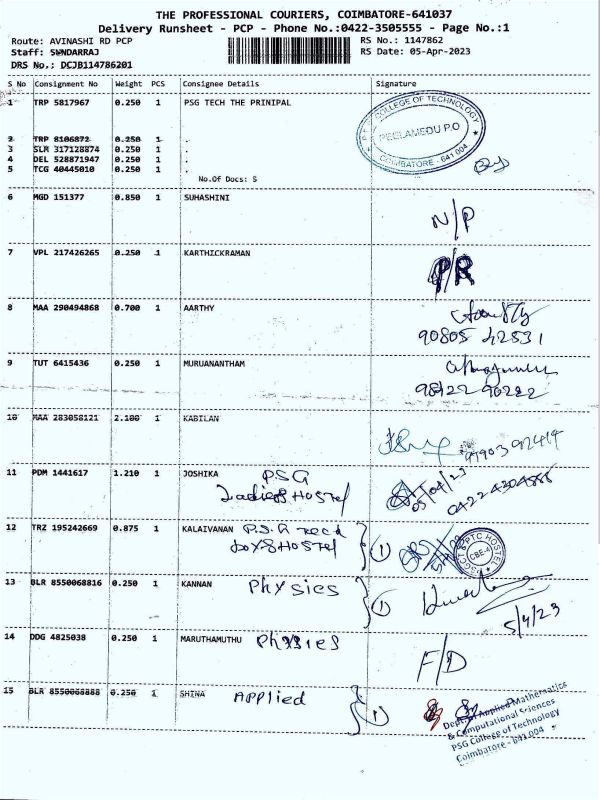 THE PROFESSIONAL COURIERS, COIMBATORE-641037
Delivery Runsheet - PCP - Phone No.:0422-3505555 - Page No.:1
Route: AVINASHI RD PCP RS No.: 1147862
Staff: SWNDARRAJ RS Date: 05-Apr-2023
DRS No,: DCJB114786201
S No Consignment No Weight PCS Consignee Details Signature
1 TRP 5817967 0.250 1 PSG TECH THE PRINIPAL
COLLEGE OF TECHNOLOGY
PEELAMEDU P.O
COIMBATORE - 641 004
2 TRP 8106872 0.250 1 .
3 SLR 317128874 0.250 1 .
4 DEL 528871947 0.250 1 .
5 TCG 40445010 0.250 1 .
No.Of Docs: 5
6 MGD 151377 0.850 1 SUHASHINI N/P
7 VPL 217426265 0.250 1 KARTHICKRAMAN P/R
8 MAA 290494868 0.700 1 AARTHY
90805 42531
9 TUT 6415436 0.250 1 MURUANANTHAM
98422 90222
10 MAA 283058121 2.100 1 KABILAN
11 PDM 1441617 1.210 1 JOSHIKA PSG
Ladies Hostel
05/04/23
12 TRZ 195242669 0.875 1 KALAIVANAN P.S.G Tech
boys Hostel
1
PSGCT & PTC HOSTEL
CBE-4
13 BLR 8550068816 0.250 1 KANNAN Physics 1
5/4/23
14 DDG 4825038 0.250 1 MARUTHAMUTHU Physics F/D
15 BLR 8550068888 0.250 1 SHINA Applied 1
Dept. of Applied Mathematics
& Computational Sciences
PSG College of Technology
Coimbatore - 641 004